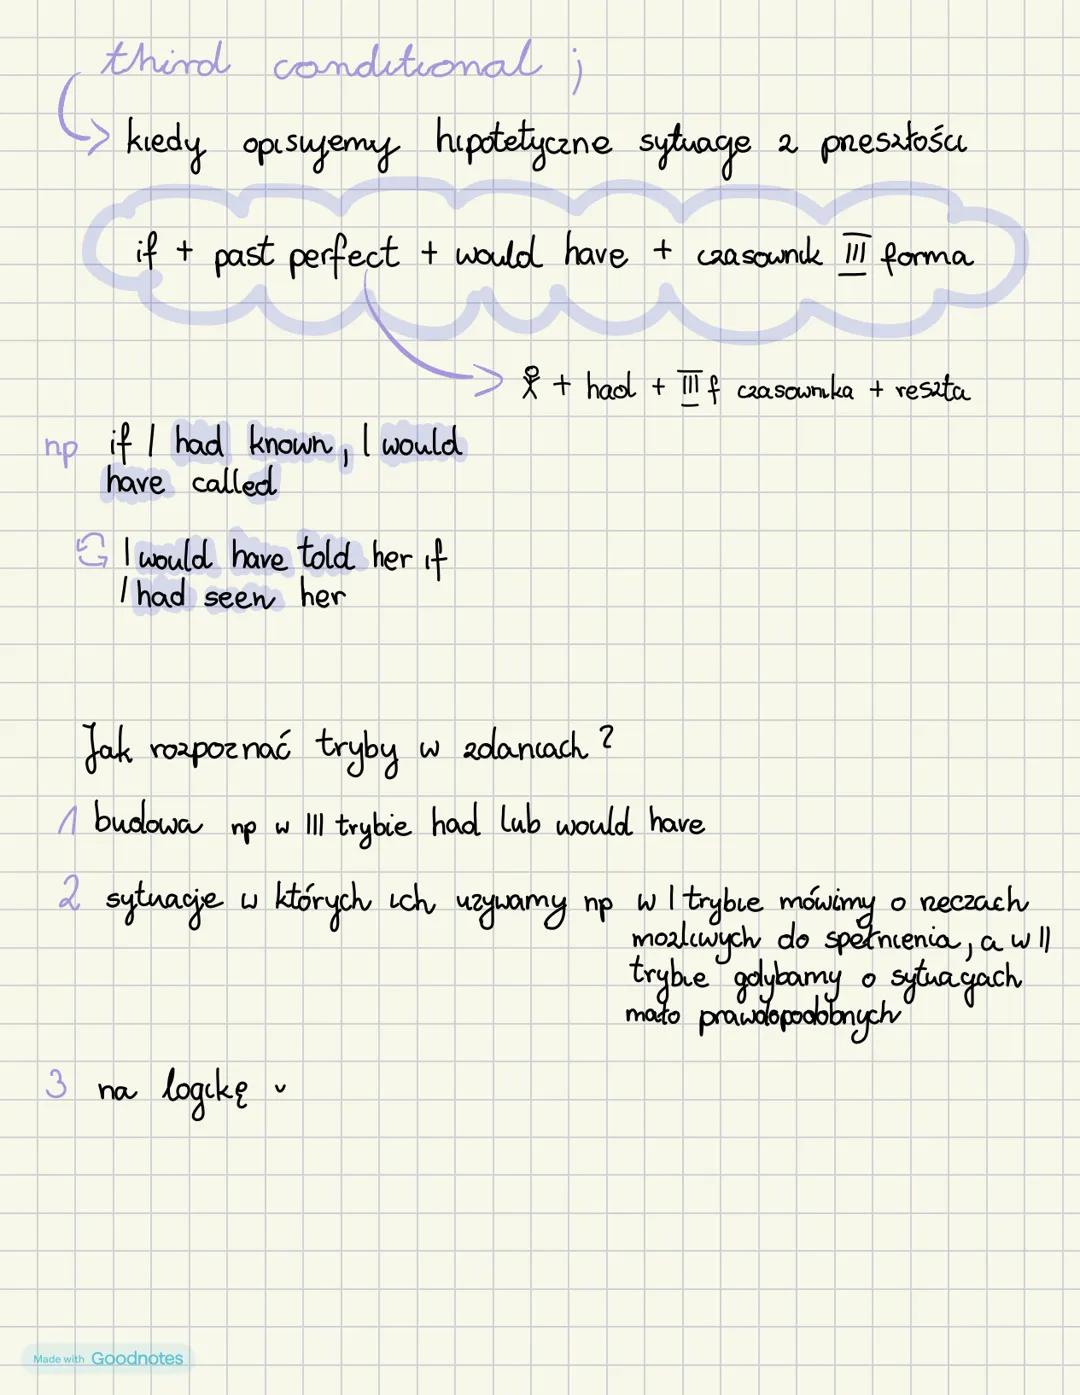 third conditional ;
kiedy opisujemy hipotetyczne sytuacje z przeszłości
if + past perfect + would have + czasownik III forma
+ had + III f czasownika + reszta
np if I had known, I would
have called
I would have told her if
I had seen her
Jak rozpoznać tryby w zdaniach?
1 budowa np w III trybie had lub would have
2 sytuacje w których ich używamy np w I trybie mówimy o rzeczach
możliwych do spełnienia, a w II
trybie gdybamy o sytuacjach
mało prawdopodobnych
3 na logikę
Made with Goodnotes